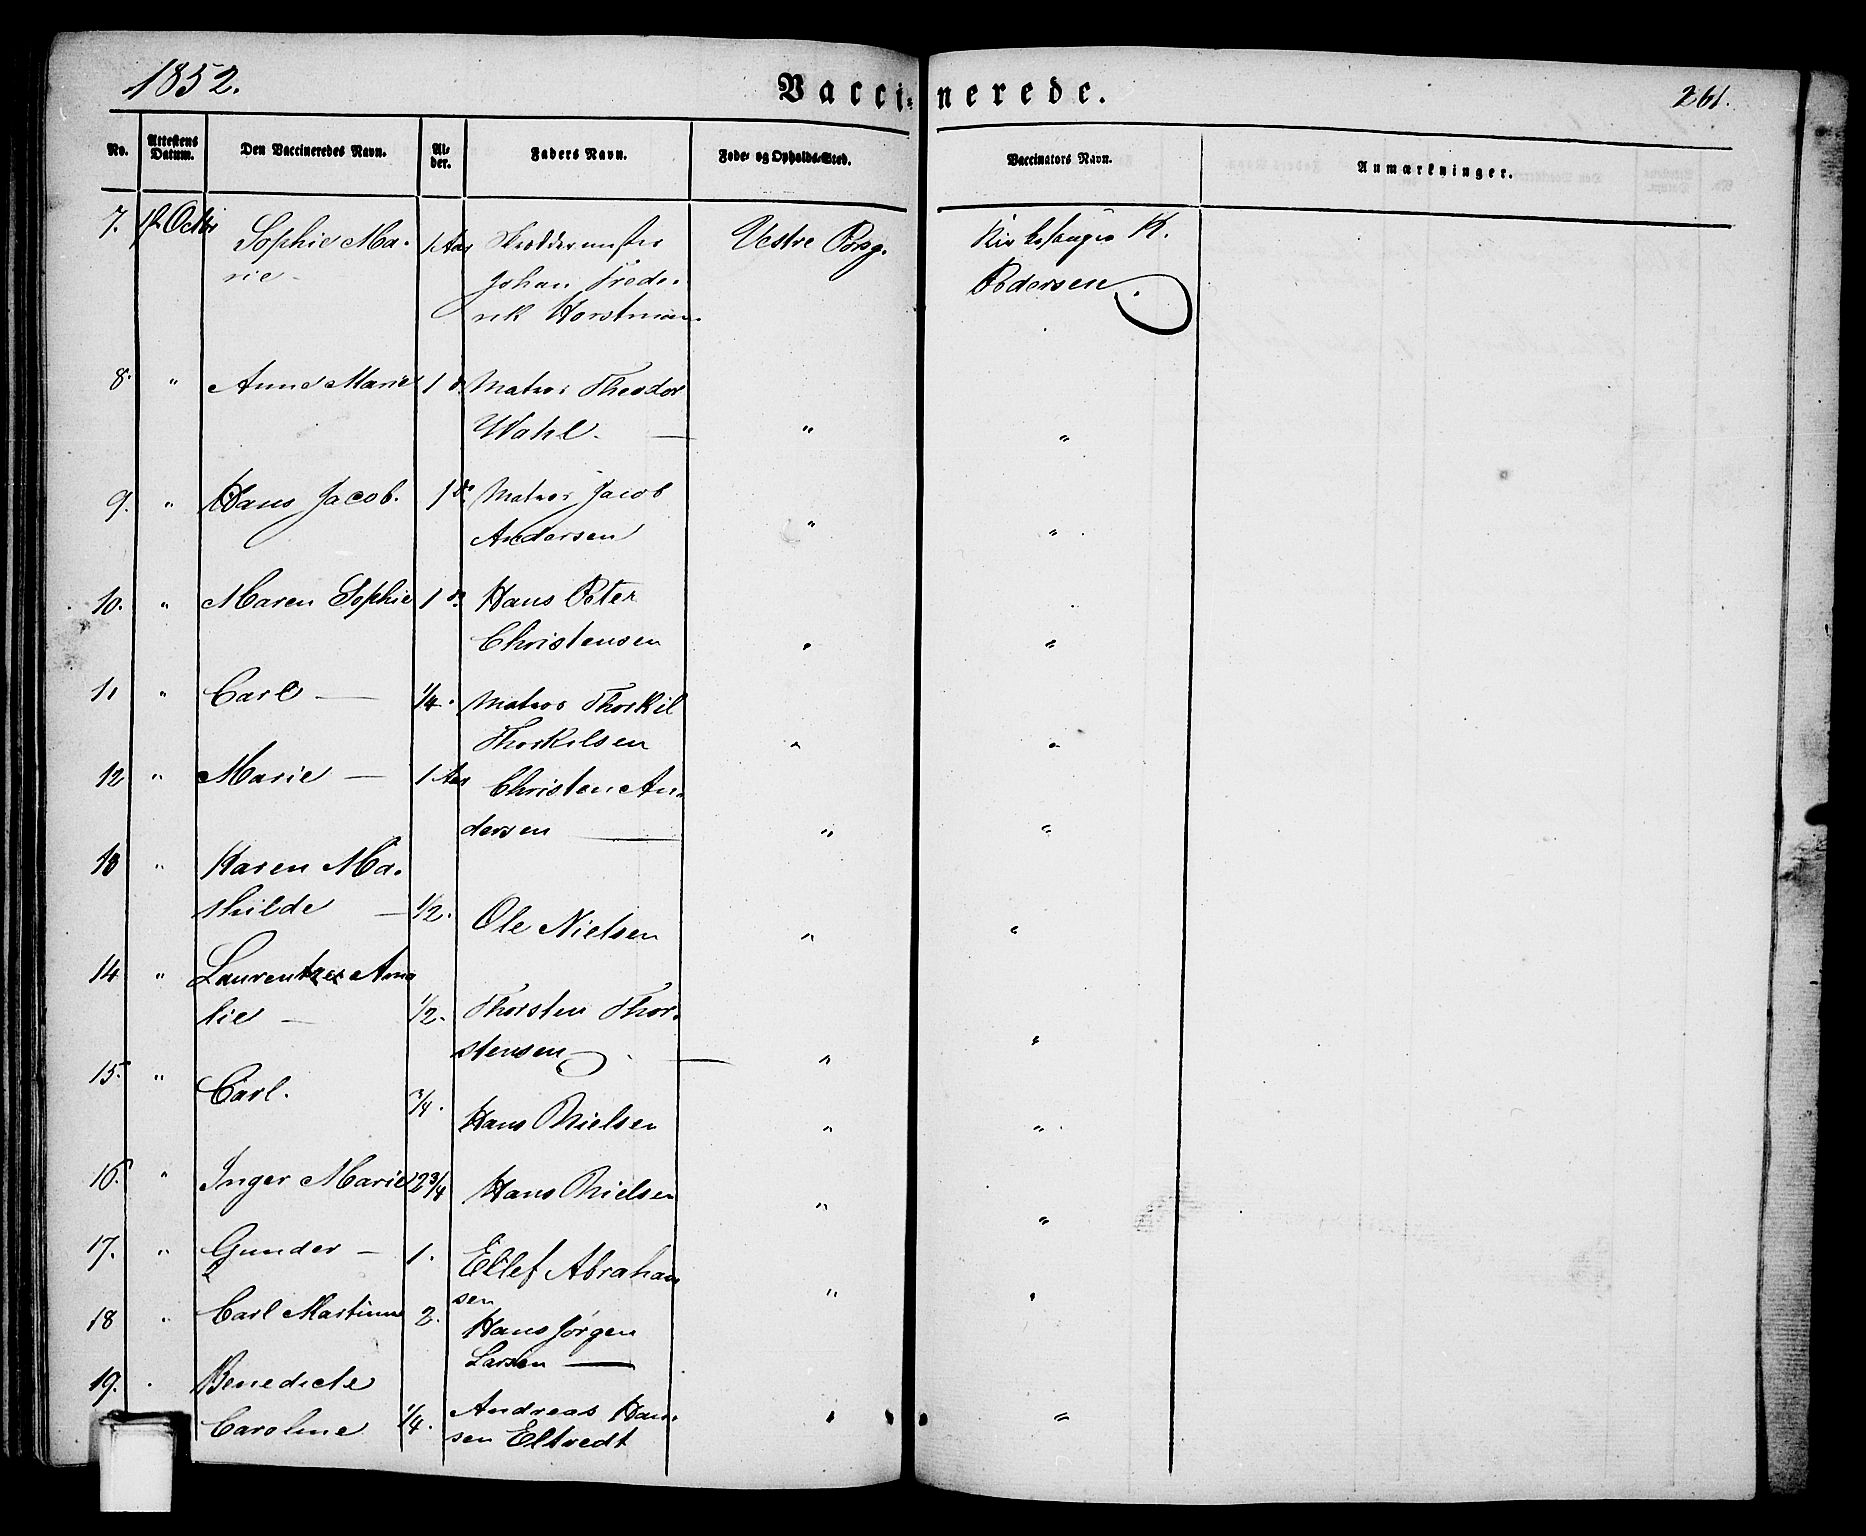 1852. Vaccinerede. 261.
No. Attestens Datum. Den Vaccineredes Navn. Alder. Faders Navn. Føde- og Opholds-Sted. Vaccinators Navn. Anmærkninger.
7. Octbr Sophie Ma- 1 Aar Skräddermester Vestre Porsg. Kirkesanger K.
rie Johan Frede- Pedersen.
rik Horstman
8. " Anne Marie 1 do. Matros Theodor
Wahl. — " "
9. " Hans Jacob. 1 do. Matros Jacob
Andersen " "
10. " Maren Sophie 1 do. Hans Peter
Christensen " "
11 " Carl — 1/4. Matros Thorkil
Thorkilsen " "
12 " Marie — 1 Aar Christen An-
dersen — " "
13 " Karen Ma-
thilde — 1/2. Ole Nielsen " "
14 " Laurentze Ama
lie — 1/2. Thorsten Thor-
stensen — " "
15. " Carl. 3/4. Hans Nielsen " "
16. " Inger Marie 12 3/4 Hans Nielsen " "
17. " Gunder — 1. Ellef Abraham
sen " "
18 " Carl Martinus 2. Hans Jørgen
Larsen —
19. " Benedicte
Caroline 1/4. Andreas Han-
sen Eltvedt " "